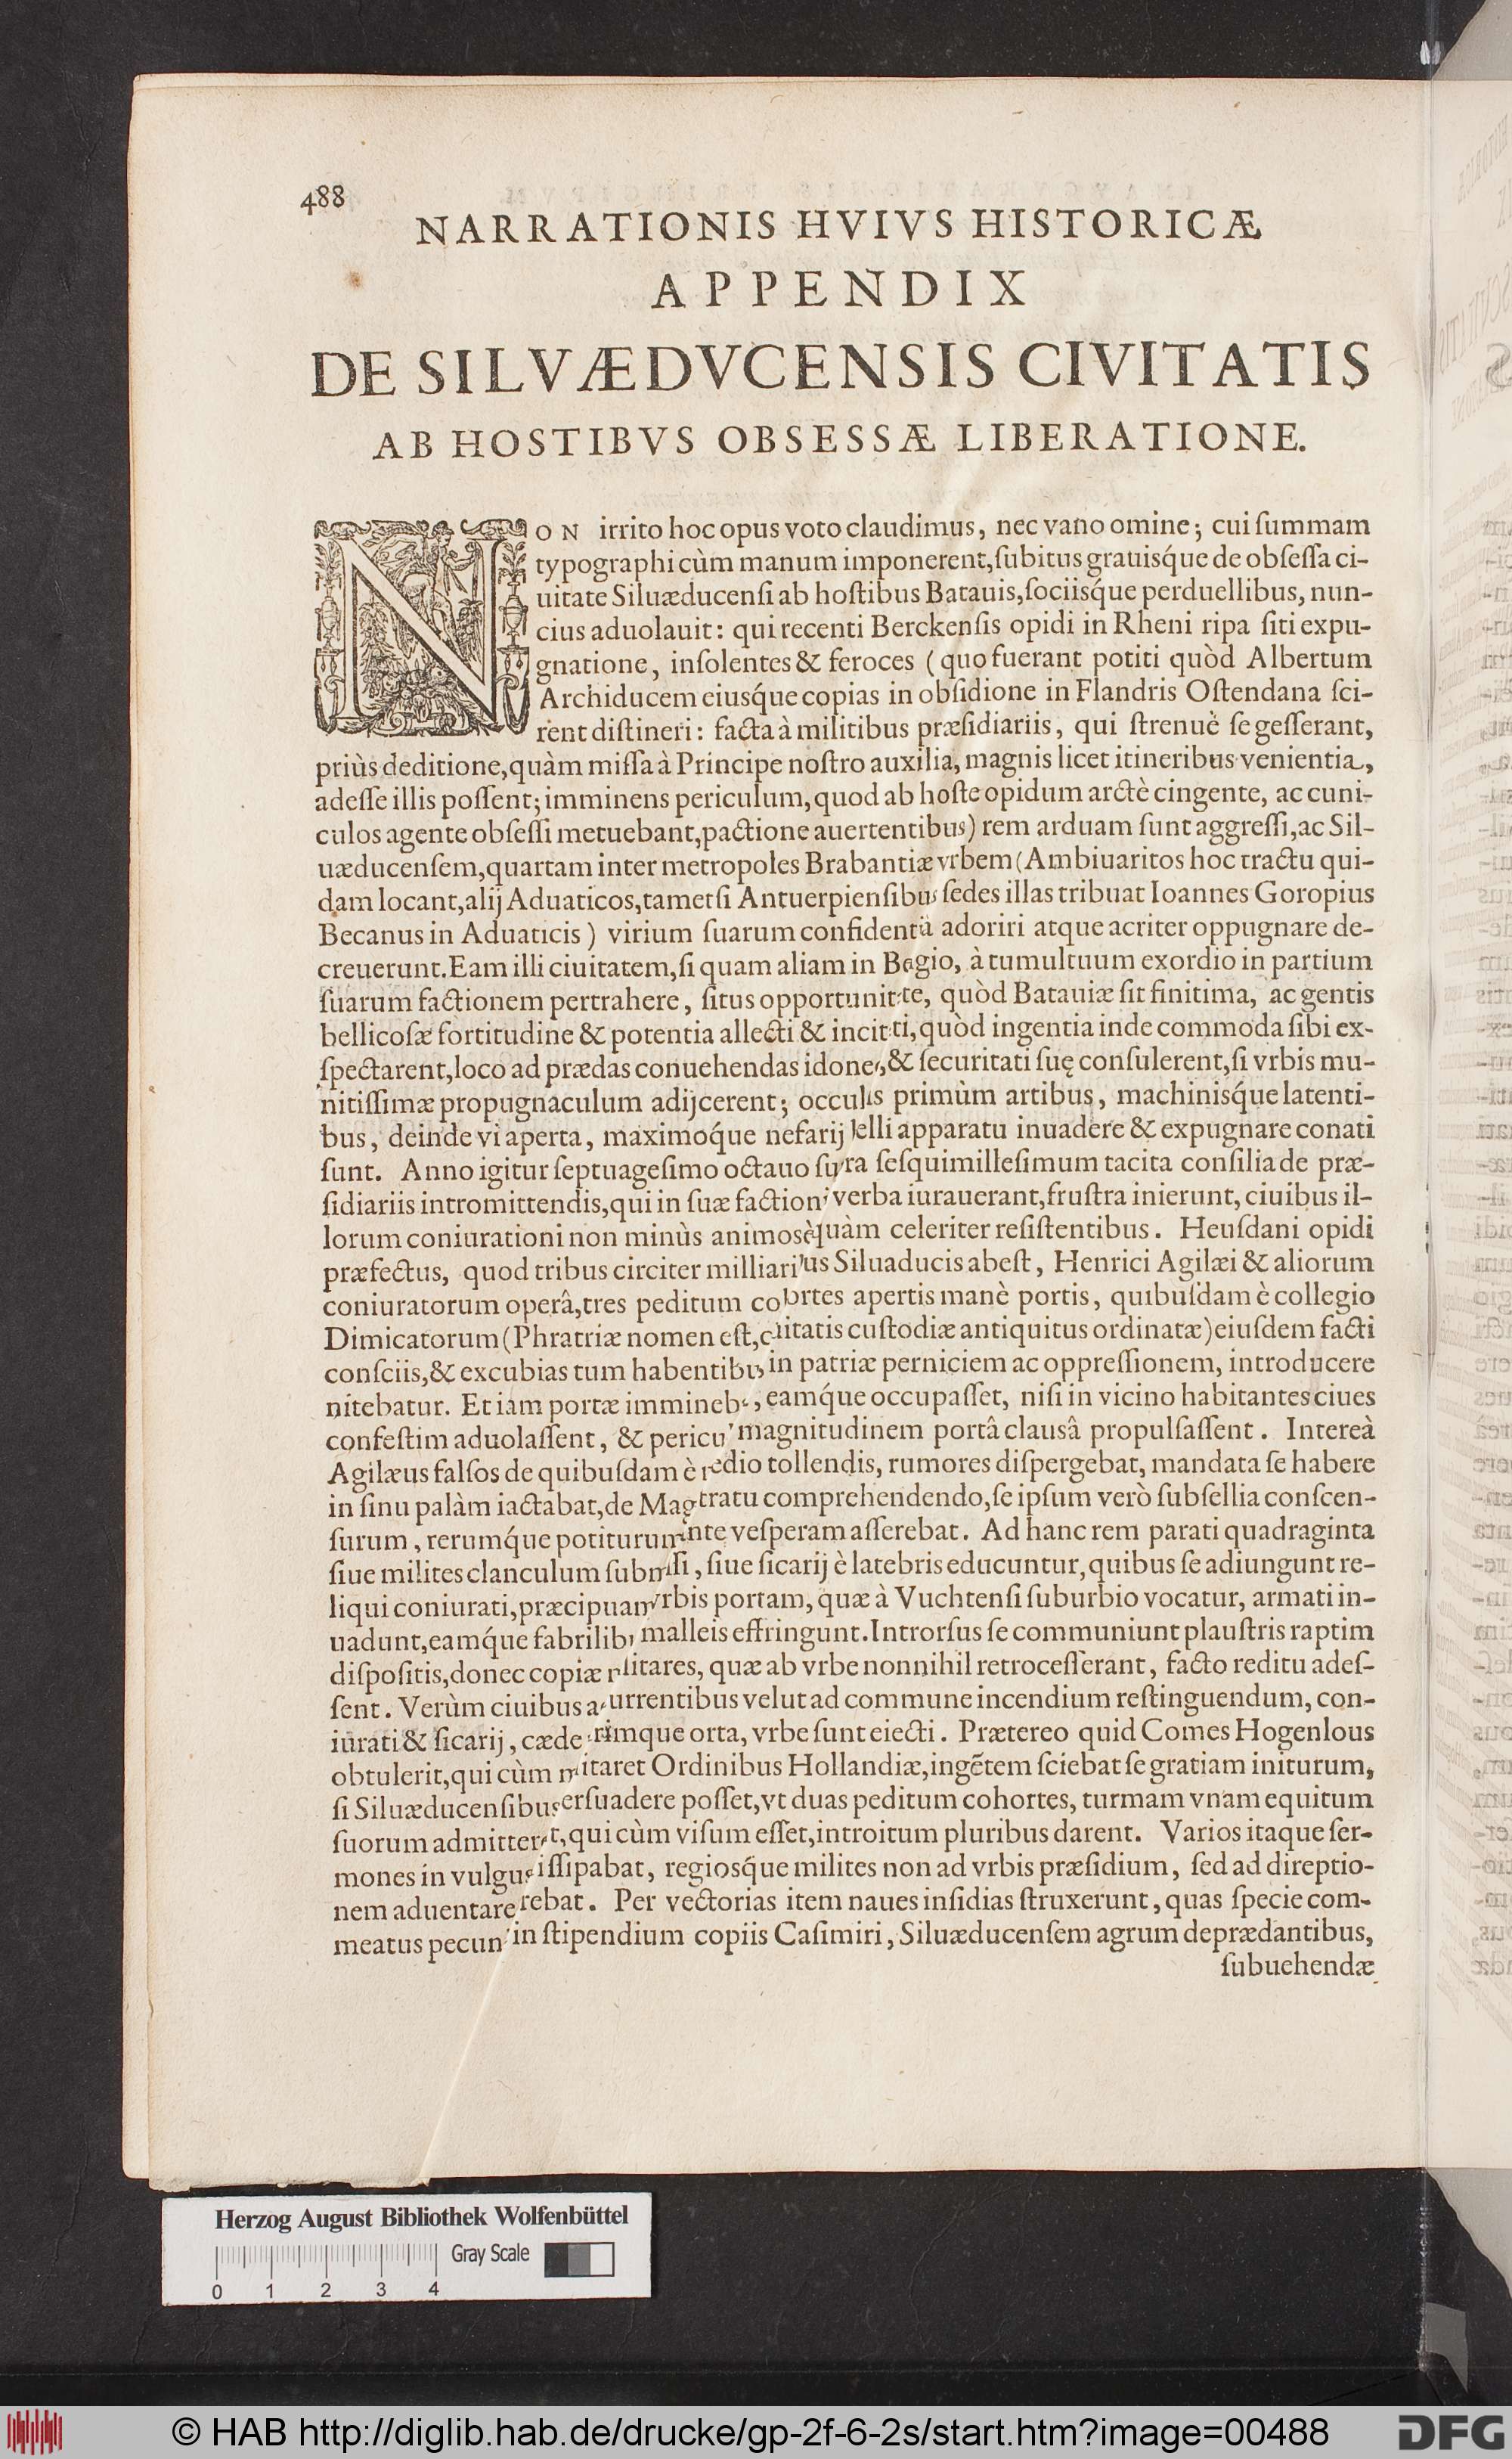 488
NARRATIONIS HVIVS HISTORICÆ
APPENDIX
DE SILVÆDVCENSIS CIVITATIS
AB HOSTIBVS OBSESSÆ LIBERATIONE.
NON irrito hoc opus voto claudimus, nec vano omine; cui ſummam
typographi cùm manum imponerent, ſubitus grauisq́ue de obſeſſa ci-
uitate Siluæducenſi ab hoſtibus Batauis, ſociisq́ue perduellibus, nun-
cius aduolauit: qui recenti Berckenſis opidi in Rheni ripa ſiti expu-
gnatione, inſolentes & feroces (quo fuerant potiti quòd Albertum
Archiducem eiusq́ue copias in obſidione in Flandris Oſtendana ſci-
rent diſtineri: facta à militibus præſidiariis, qui ſtrenuè ſe geſſerant,
priùs deditione, quàm miſſa à Principe noſtro auxilia, magnis licet itineribus venientia,
adeſſe illis poſſent; imminens periculum, quod ab hoſte opidum arctè cingente, ac cuni-
culos agente obſeſſi metuebant, pactione auertentibus) rem arduam ſunt aggreſſi, ac Sil-
uæducenſem, quartam inter metropoles Brabantiæ vrbem (Ambiuaritos hoc tractu qui-
dam locant, alij Aduaticos, tametſi Antuerpienſibus ſedes illas tribuat Ioannes Goropius
Becanus in Aduaticis) virium ſuarum confidentâ adoriri atque acriter oppugnare de-
creuerunt. Eam illi ciuitatem, ſi quam aliam in Bgio, à tumultuum exordio in partium
ſuarum factionem pertrahere, ſitus opportunitte, quòd Batauiæ ſit finitima, ac gentis
bellicoſæ fortitudine & potentia allecti & incitti, quòd ingentia inde commoda ſibi ex-
ſpectarent, loco ad prædas conuehendas idone, & ſecuritati ſuę conſulerent, ſi vrbis mu-
nitiſſimæ propugnaculum adijcerent; occulis primùm artibus, machinisq́ue latenti-
bus, deinde vi aperta, maximoq́ue nefarij elli apparatu inuadere & expugnare conati
ſunt. Anno igitur ſeptuageſimo octauo ſura ſeſquimilleſimum tacita conſilia de præ-
ſidiariis intromittendis, qui in ſuæ factioni verba iurauerant, fruſtra inierunt, ciuibus il-
lorum coniurationi non minùs animosè quàm celeriter reſiſtentibus. Heuſdani opidi
præfectus, quod tribus circiter milliarius Siluaducis abeſt, Henrici Agilæi & aliorum
coniuratorum operâ, tres peditum cohrtes apertis manè portis, quibuſdam è collegio
Dimicatorum (Phratriæ nomen eſt, ciitatis cuſtodiæ antiquitus ordinatæ) eiuſdem facti
conſciis, & excubias tum habentibus in patriæ perniciem ac oppreſſionem, introducere
nitebatur. Et iam portæ immineb, eamq́ue occupaſſet, niſi in vicino habitantes ciues
confeſtim aduolaſſent, & pericu magnitudinem portâ clausâ propulſaſſent. Intereà
Agilæus falſos de quibuſdam è redio tollendis, rumores diſpergebat, mandata ſe habere
in ſinu palàm iactabat, de Magtratu comprehendendo, ſe ipſum verò ſubſellia conſcen-
ſurum, rerumq́ue potiturum nte veſperam aſſerebat. Ad hanc rem parati quadraginta
ſiue milites clanculum ſubmiſſi, ſiue ſicarij è latebris educuntur, quibus ſe adiungunt re-
liqui coniurati, præcipuam vrbis portam, quæ à Vuchtenſi ſuburbio vocatur, armati in-
uadunt, eamq́ue fabrilib malleis effringunt. Introrſus ſe communiunt plauſtris raptim
diſpoſitis, donec copiæ litares, quæ ab vrbe nonnihil retroceſſerant, facto reditu adeſ-
ſent. Verùm ciuibus aurrentibus velut ad commune incendium reſtinguendum, con-
iurati & ſicarij, cæde rimque orta, vrbe ſunt eiecti. Prætereo quid Comes Hogenlous
obtulerit, qui cùm mitaret Ordinibus Hollandiæ, ingẽtem ſciebat ſe gratiam initurum,
ſi Siluæducenſibus erſuadere poſſet, vt duas peditum cohortes, turmam vnam equitum
ſuorum admitteret, qui cùm viſum eſſet, introitum pluribus darent. Varios itaque ſer-
mones in vulgus iſſipabat, regiosq́ue milites non ad vrbis præſidium, ſed ad direptio-
nem aduentare rebat. Per vectorias item naues inſidias ſtruxerunt, quas ſpecie com-
meatus pecun in ſtipendium copiis Caſimiri, Siluæducenſem agrum deprædantibus,
ſubuehendæ
Herzog August Bibliothek Wolfenbüttel
Gray Scale
0 1 2 3 4
© HAB http://diglib.hab.de/drucke/gp-2f-6-2s/start.htm?image=00488
DFG